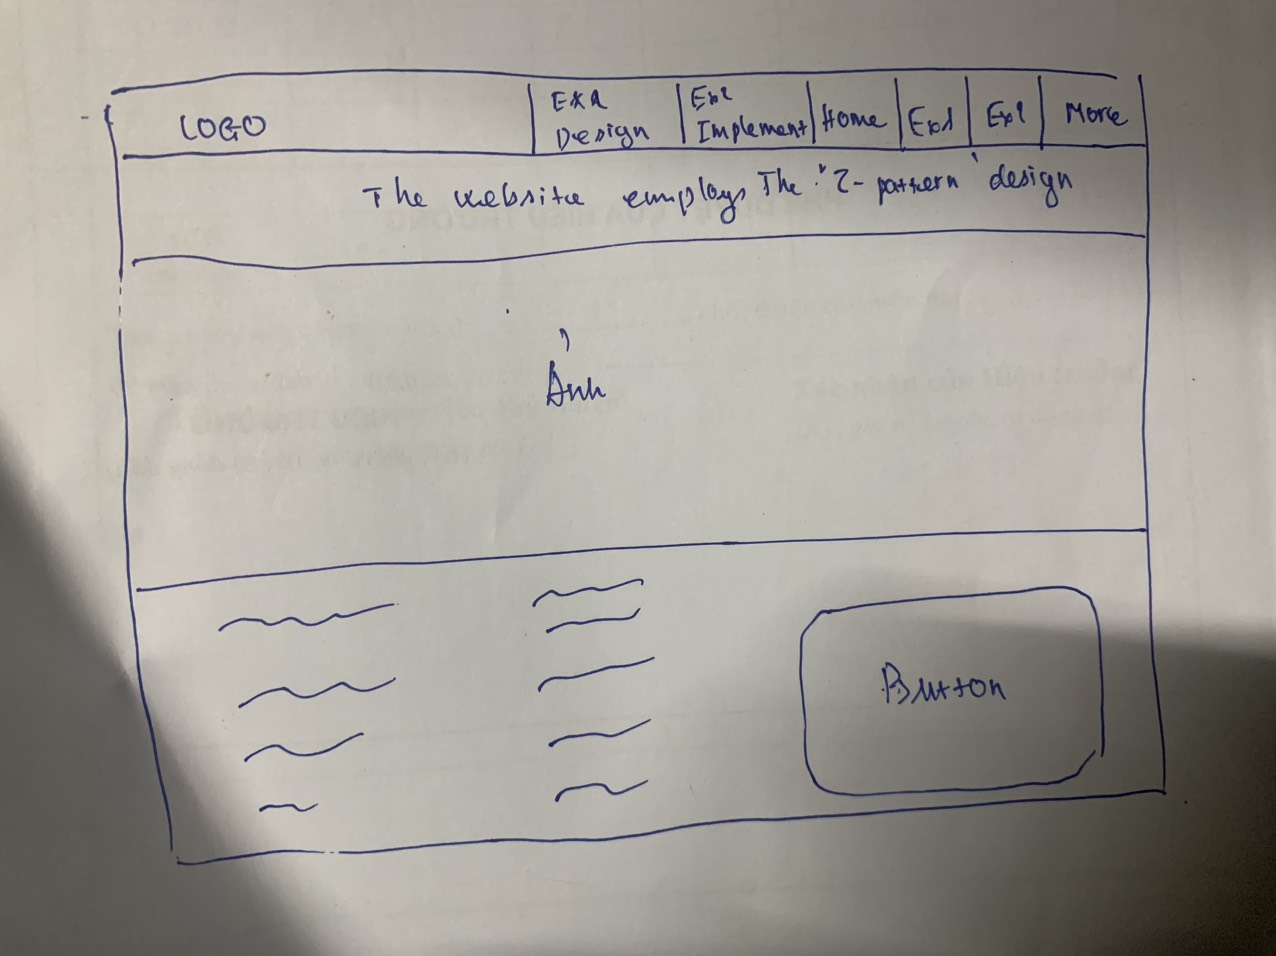 LOGO
Ex1
Design
Ex2
Implement
Home
Ex1
Ex2
More
The website employs The "Z-pattern" design
Ảnh
Button